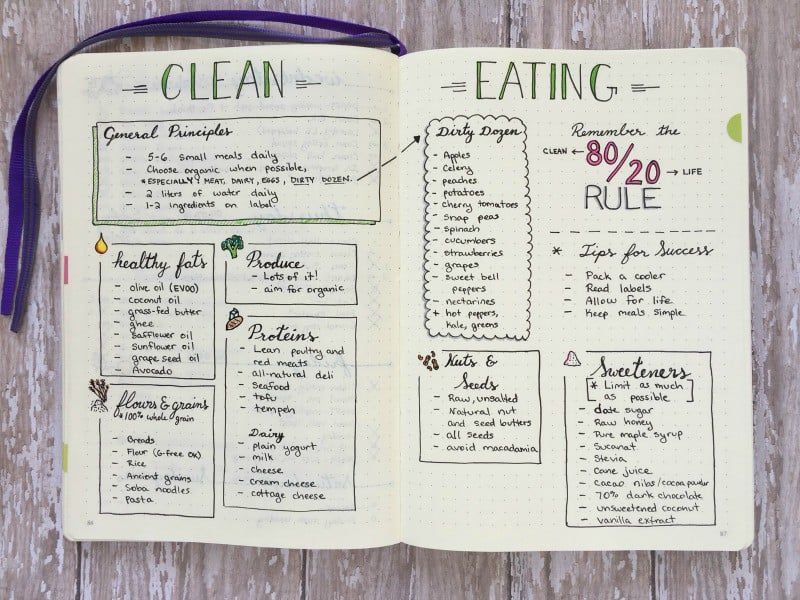 CLEAN
General Principles
- 5-6 small meals daily
- Choose organic when possible,
*ESPECIALLY) MEAT, DAIRY, EGGS, DIRTY DOZEN.
- 2 liters of water daily
- 1-2 ingredients on label.
healthy fats
- olive oil (EVOO)
- coconut oil
- grass-fed butter
- ghee
- Safflower oil
- Sunflower oil
- grape seed oil
- Avocado
flours & grains
*100% whole grain
- Breads
- Flour (G-free OK)
- Rice
- Ancient grains
- Soba noodles
- Pasta
Produce
- Lots of it!
- aim for organic
Proteins
- Lean poultry and
red meats
- all-natural deli
- Seafood
- tofu
- tempeh
Dairy
- plain yogurt
- milk
- cheese
- cream cheese
- cottage cheese
86
EATING
Dirty Dozen
- Apples
- Celery
- peaches
- potatoes
- cherry tomatoes
- Snap peas
- spinach
- cucumbers
- strawberries
- grapes
- sweet bell
peppers
- nectarines
+ hot peppers,
kale, greens
Remember the
CLEAN ← 80/20 → LIFE
RULE
* Tips for Success
- Pack a cooler
- Read labels
- Allow for life
- Keep meals simple
Nuts &
Seeds
- Raw, unsalted
- Natural nut
and seed butters
- all seeds
- avoid macadamia
Sweeteners
[* Limit as much
as possible]
- date sugar
- Raw honey
- Pure maple syrup
- Sucanat
- Stevia
- Cane juice
- Cacao nibs/cocoa powder
- 70% dark chocolate
- unsweetened coconut
- vanilla extract
87